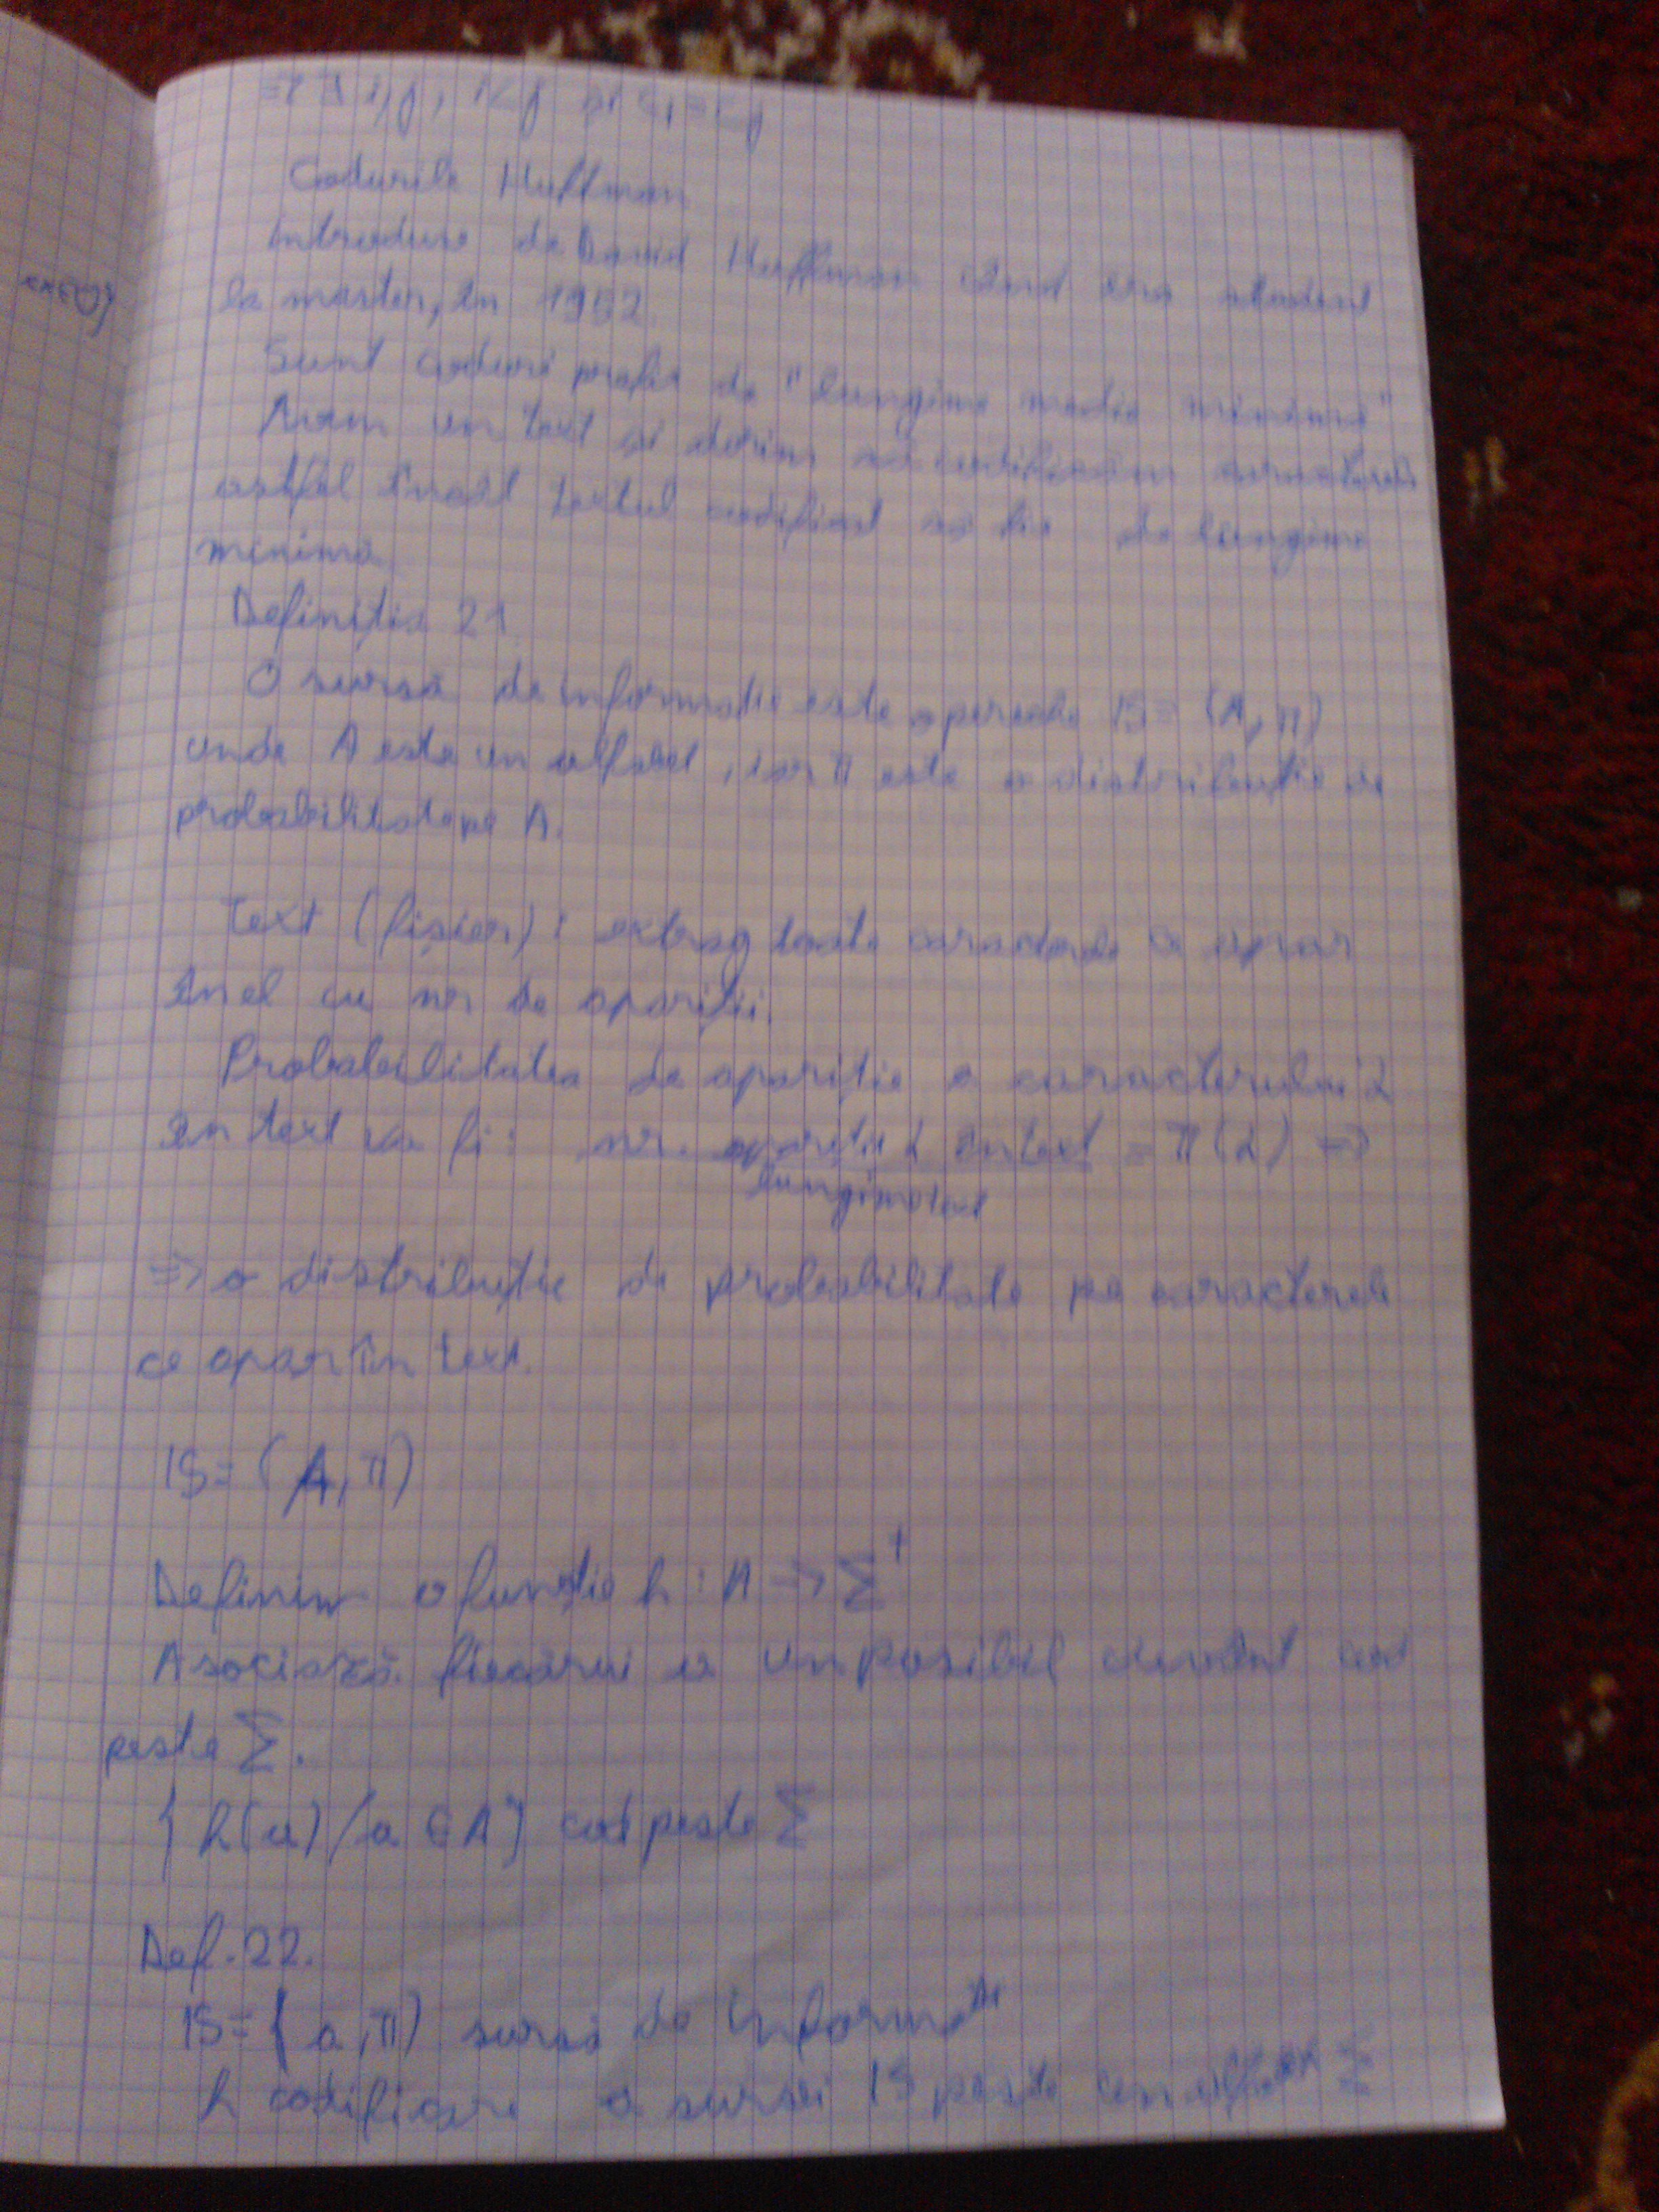 => ∃ i,j, i<j și c_i = c_j
Codurile Huffman
Introduse de David Huffman când era student
la master, în 1952.
Sunt coduri prefix de "lungime medie minimă"
Avem un text și dorim să codificăm caracterele
astfel încât textul codificat să fie de lungime
minimă.
Definiția 21.
O sursă de informație este o pereche IS = (A, π)
unde A este un alfabet, iar π este o distribuție de
probabilitate pe A.
Text (fișier): extrag toate caracterele ce apar
în el cu nr de apariții.
Probabilitatea de apariție a caracterului α
în text va fi: nr. apariții α în text = π(α) =>
lungime text
=> o distribuție de probabilitate pe caracterele
ce apar în text.
IS = (A, π)
Definim o funcție h : A => Σ⁺
Asociază fiecărui a un posibil cuvânt cod
peste Σ.
{ h(a) / a ∈ A } cod peste Σ
Def. 22.
IS = (a, π) sursă de informații
h codificare a sursei IS peste un alfabet Σ